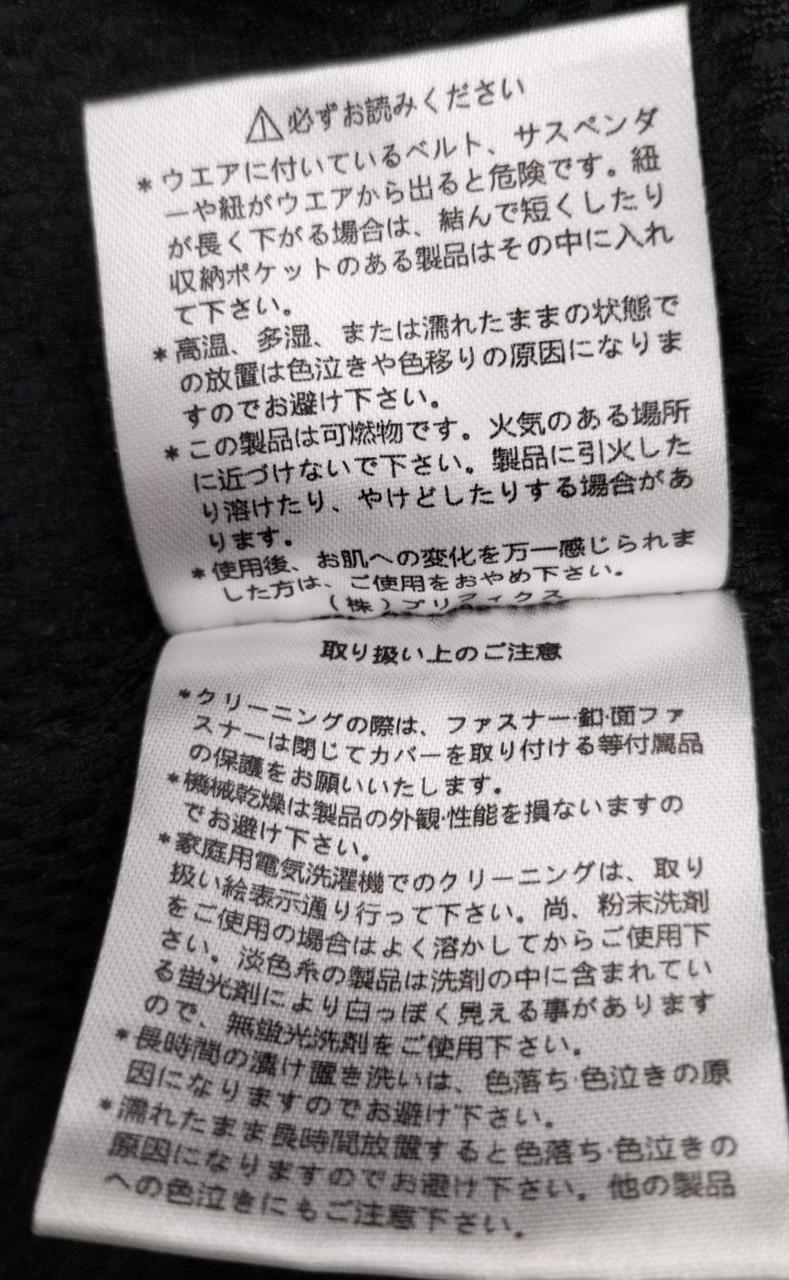 ⚠必ずお読みください
*ウエアに付いているベルト、サスペンダ
ーや紐がウエアから出ると危険です。紐
が長く下がる場合は、結んで短くしたり
収納ポケットのある製品はその中に入れ
て下さい。
*高温、多湿、または濡れたままの状態で
の放置は色泣きや色移りの原因になりま
すのでお避け下さい。
*この製品は可燃物です。火気のある場所
に近づけないで下さい。製品に引火した
り溶けたり、やけどしたりする場合があ
ります。
*使用後、お肌への変化を万一感じられま
した方は、ご使用をおやめ下さい。
(株)プリフィクス
取り扱い上のご注意
*クリーニングの際は、ファスナー·釦·面ファ
スナーは閉じてカバーを取り付ける等付属品
の保護をお願いいたします。
*機械乾燥は製品の外観·性能を損ないますの
でお避け下さい。
*家庭用電気洗濯機でのクリーニングは、取り
扱い絵表示通り行って下さい。尚、粉末洗剤
をご使用の場合はよく溶かしてからご使用下
さい。淡色糸の製品は洗剤の中に含まれてい
る蛍光剤により白っぽく見える事があります
ので、無蛍光洗剤をご使用下さい。
*長時間の漬け置き洗いは、色落ち·色泣きの原
因になりますのでお避け下さい。
*濡れたまま長時間放置すると色落ち·色泣きの
原因になりますのでお避け下さい。他の製品
への色泣きにもご注意下さい。